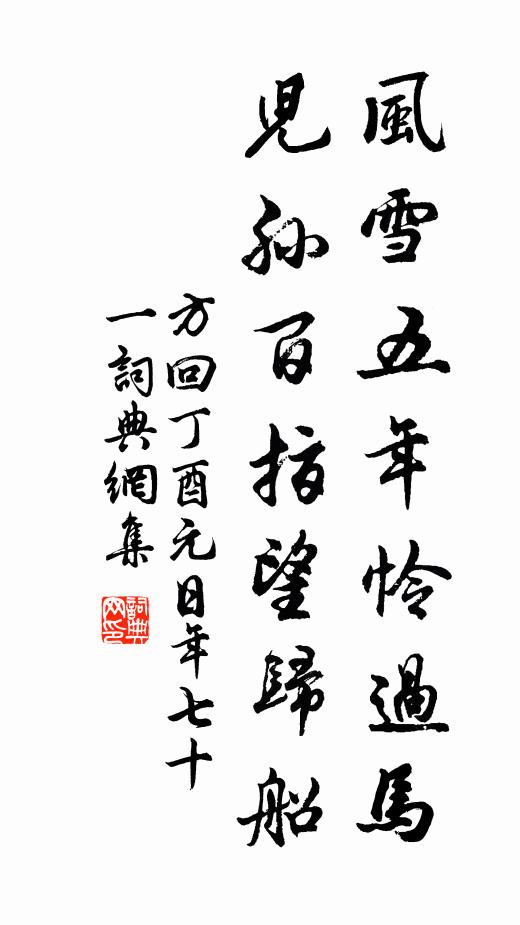 風雪五年憐過馬
兒孫百指望歸船
方回丁酉元日年七十
一詞典網集
詞典网印